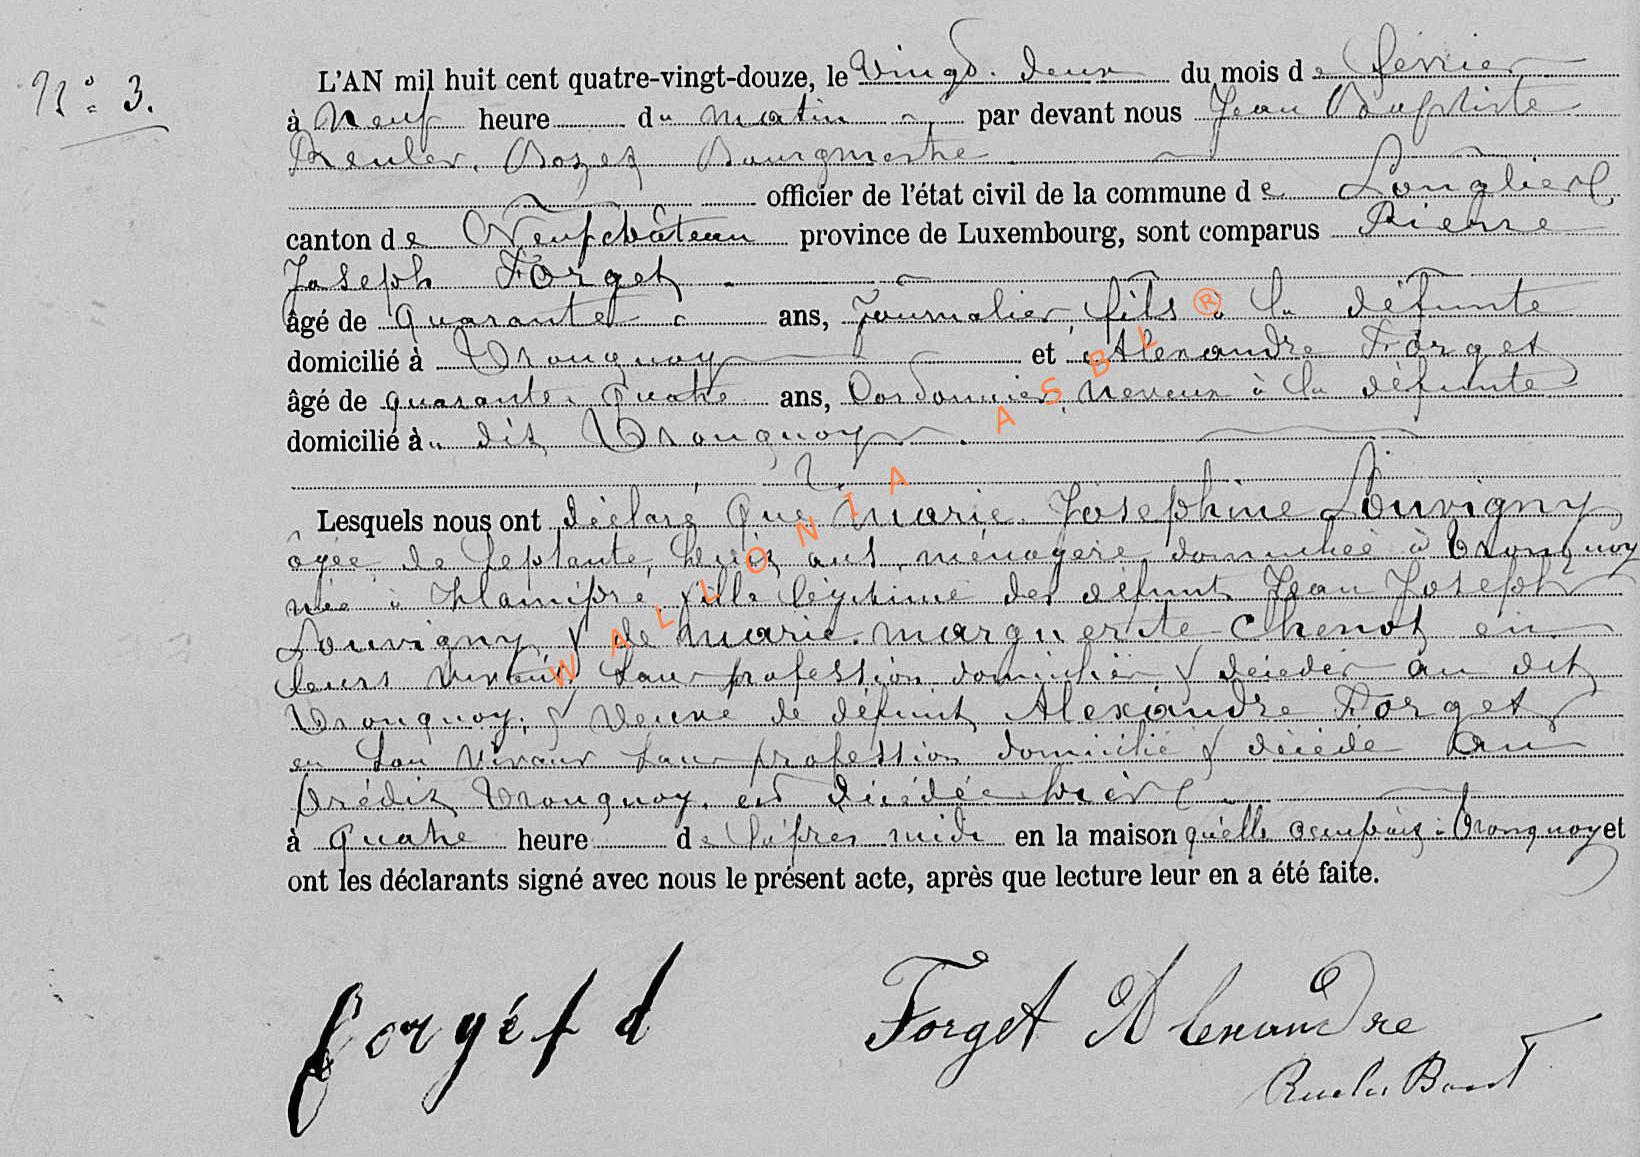 N° 3.
L'AN mil huit cent quatre-vingt-douze, le Vingt deux du mois de février
à Neuf heure du matin par devant nous Jean Baptiste
Reuler, Bozet Bourgmestre
officier de l'état civil de la commune de Longlier
canton de Neufchâteau province de Luxembourg, sont comparus Pierre
Joseph Forget
âgé de quarante ans, Journalier, fils à la défunte
domicilié à Tronquoy et Alexandre Forget
âgé de quarante quatre ans, Cordonnier, neveux à la défunte
domicilié au dit Tronquoy
Lesquels nous ont déclaré que Marie Joséphine Louvigny
âgée de septante huit ans, ménagère domiciliée à Tronquoy
née à Hamipré, fille légitime des défunt Jean Joseph
Louvigny & de Marie Marguerite Chenot en
leurs vivant sans profession domicilier & décéder au dit
Tronquoy, & veuve de défunt Alexandre Forget
en son vivant sans profession domicilié & décédé au
prédit Tronquoy, est décédée hier
à quatre heure de l'après midi en la maison qu'elle occupait à Tronquoy et
ont les déclarants signé avec nous le présent acte, après que lecture leur en a été faite.
forgét d Forget Alexandre
WALLONIA ASBL ®